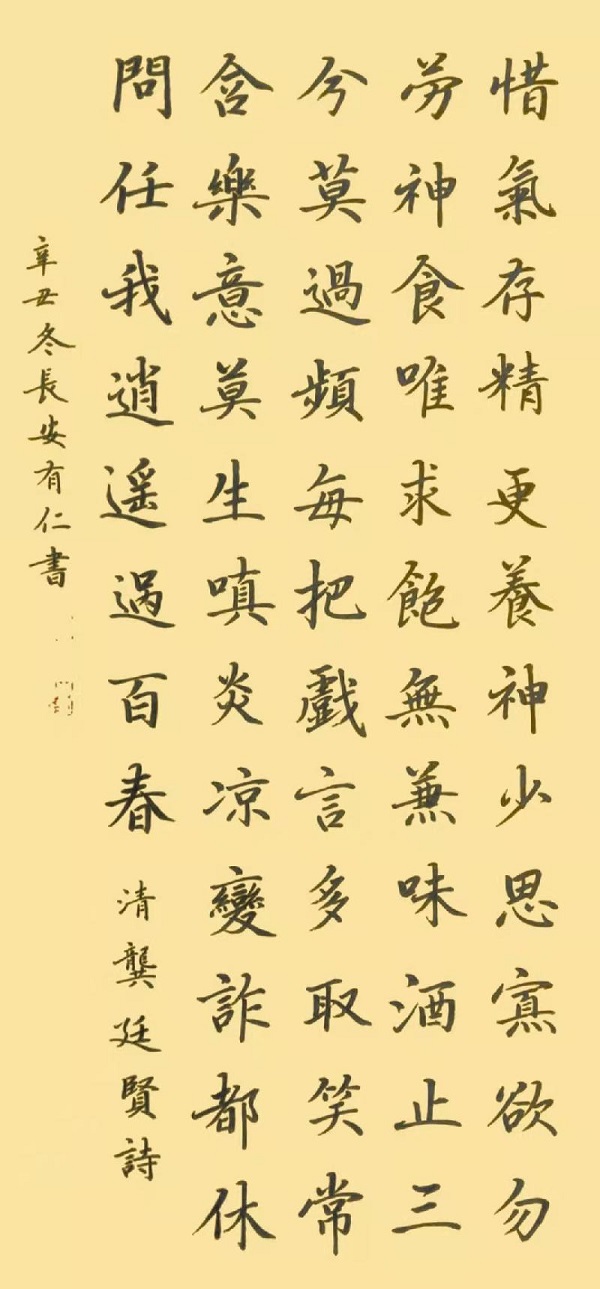 惜氣存精更養神少思寡欲勿
勞神食唯求飽無兼味酒止三
兮莫過頻每把戲言多取笑常
含樂意莫生嗔炎凉變詐都休
問任我逍遥過百春
清龔廷賢詩
辛丑冬長安有仁書